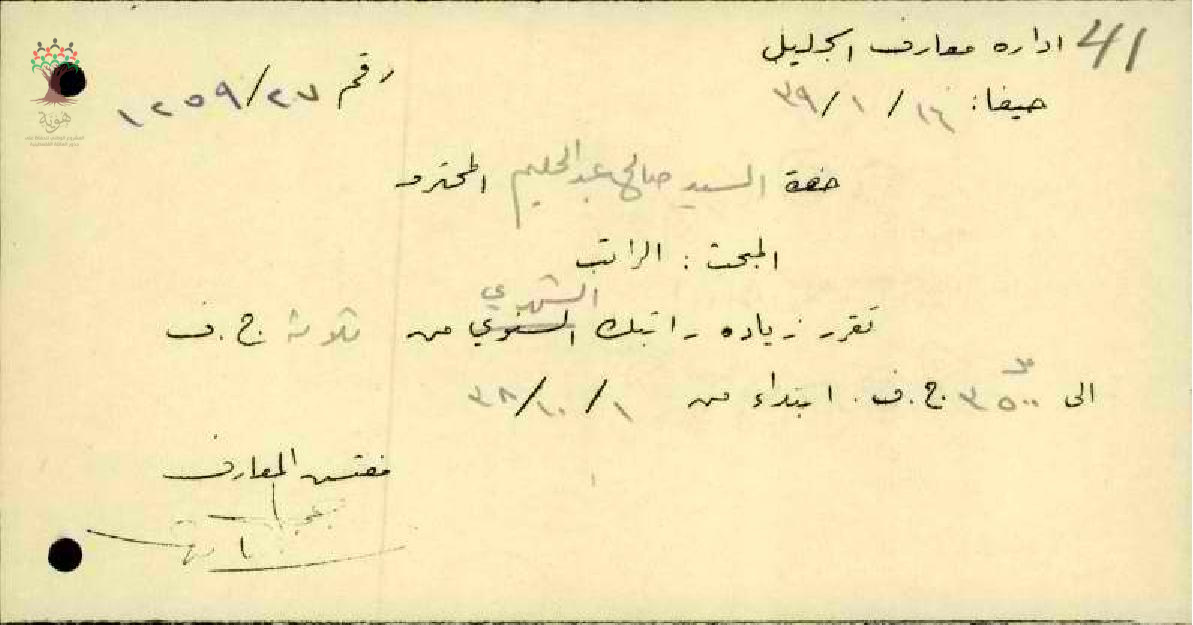 41
اداره معارف الجليل
رقم ١٢٥٩/٢٧
حيفا: ١٦/١/٣٩
حضرة السيد صالح عبد الحليم المحترم
المبحث: الراتب
الشهري
تقرر زياده راتبك السنوي من ثلاثة ج.ف
الى ٣٥٠٠ ج.ف. ابتداء من ١/١٠/٣٨
مفتش المعارف
هوية